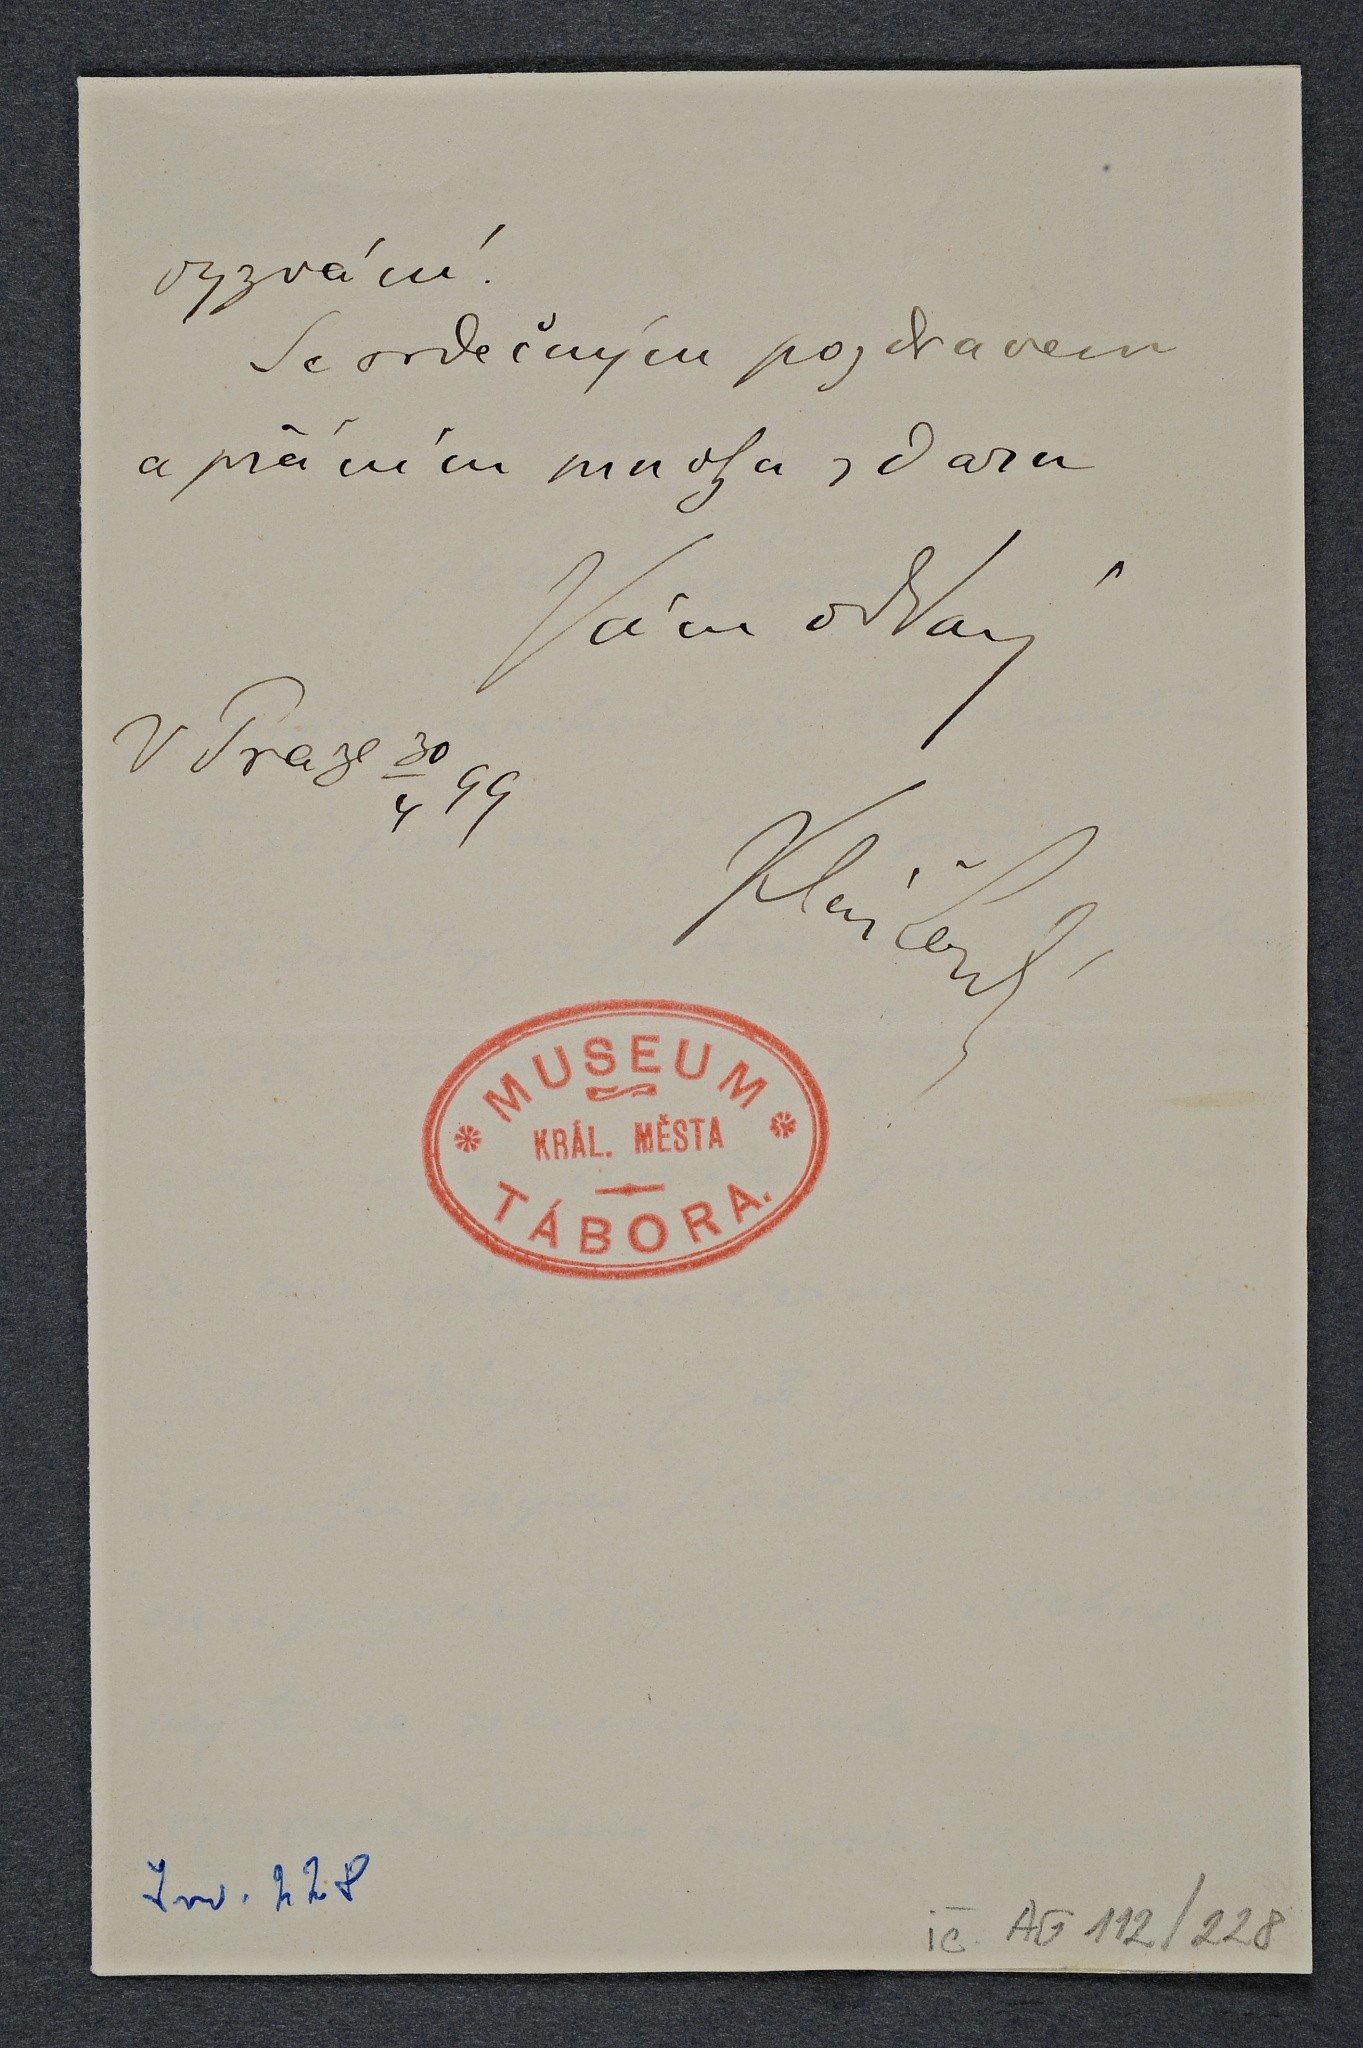 vyzvání.
Se srdečným pozdravem
a přáním mnoha zdaru
Vám oddaný
V Praze 30/4 99
MUSEUM
KRÁL. MĚSTA
TÁBORA.
Inv. 228
ič AG 112/228